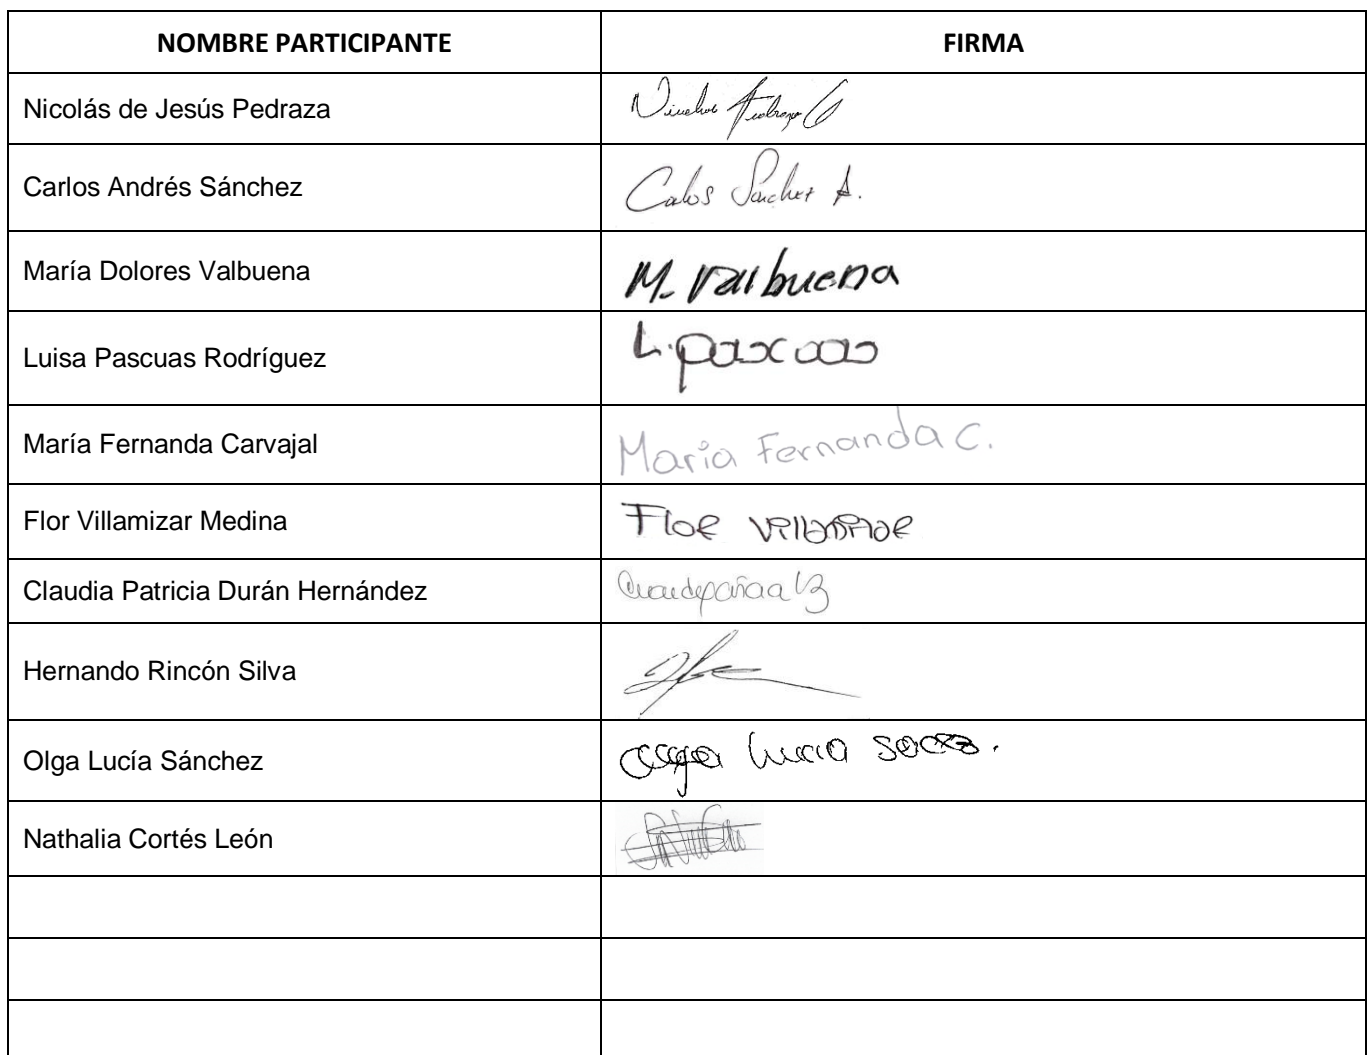 NOMBRE PARTICIPANTE FIRMA
Nicolás de Jesús Pedraza
Carlos Andrés Sánchez Carlos Sánchez A.
María Dolores Valbuena M. Valbuena
Luisa Pascuas Rodríguez L. pascuas
María Fernanda Carvajal Maria Fernanda C.
Flor Villamizar Medina Flor
Claudia Patricia Durán Hernández
Hernando Rincón Silva
Olga Lucía Sánchez Olga Lucia
Nathalia Cortés León